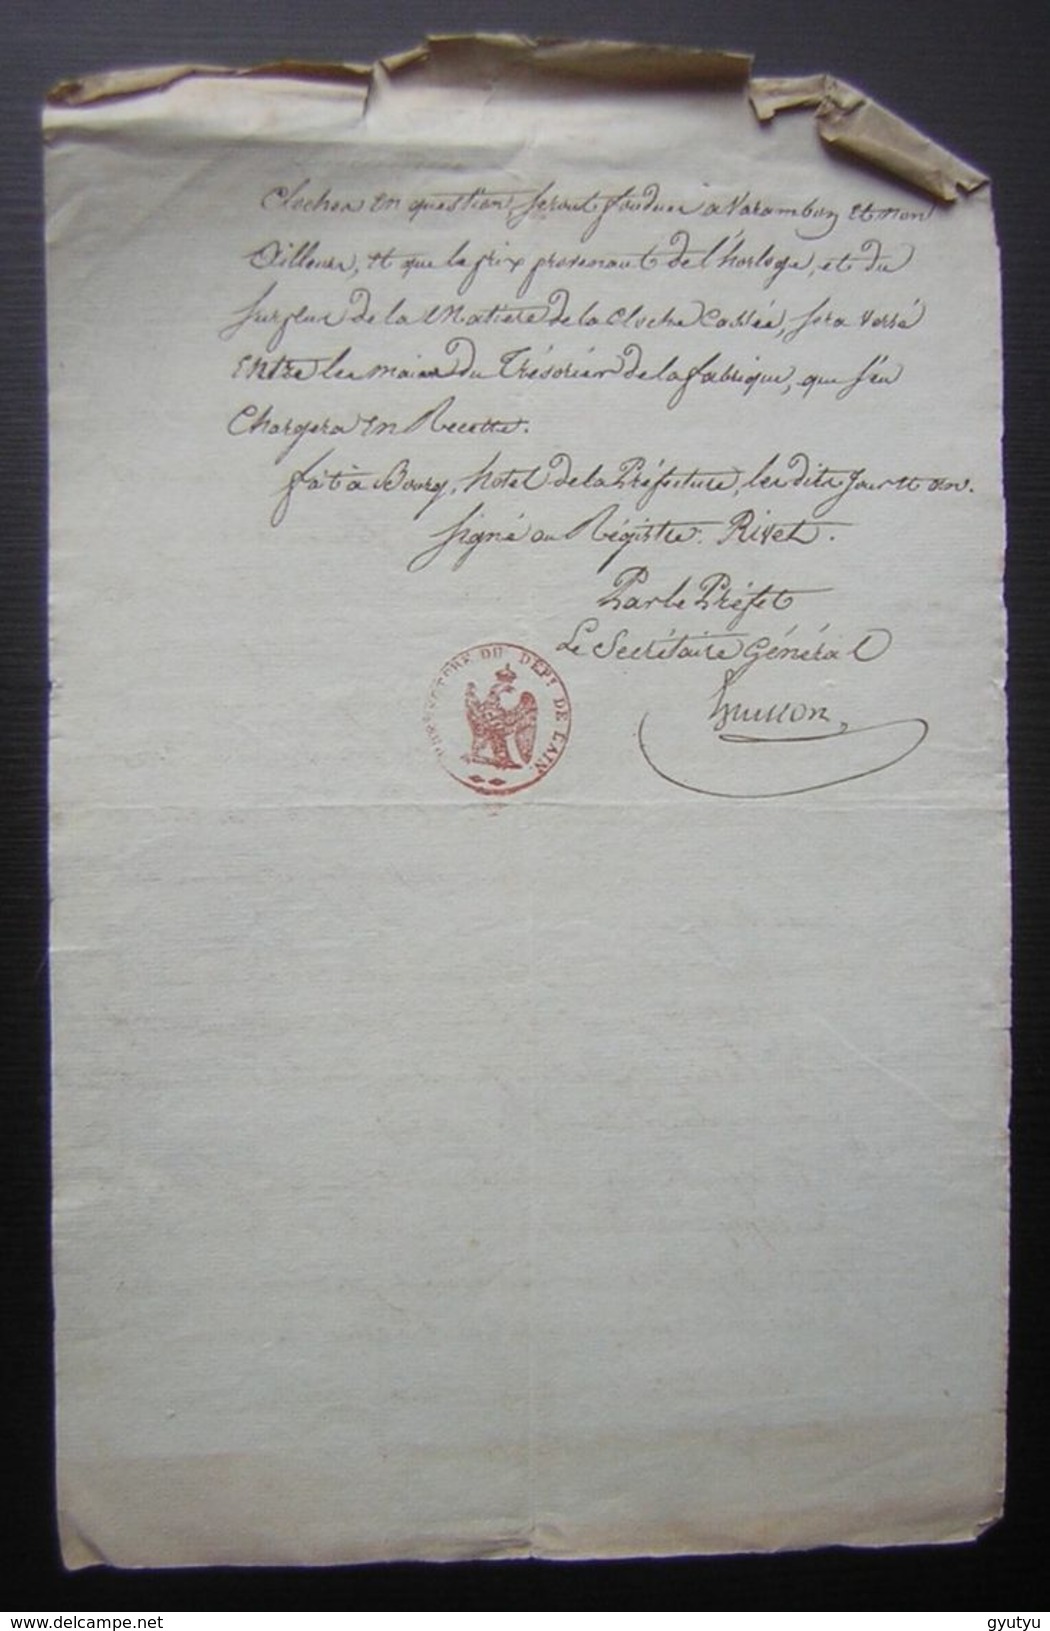 Cloches en question, seront fondues à Varambon et non
Ailleurs, et que le prix provenant de l'horloge, et du
surplus de la Matiere de la Cloche Cassée, sera versé
Entre les mains du Trésorier de la fabrique, que s'en
Chargera en Recette.
fait à Bourg, hotel de la Préfecture, les dits jour et an.
signé au Régistre. Rivet.
Par le Préfet
Le Secrétaire Général
PRÉFECTURE DU DEPT. DE L'AIN.
www.delcampe.net
gyutyu